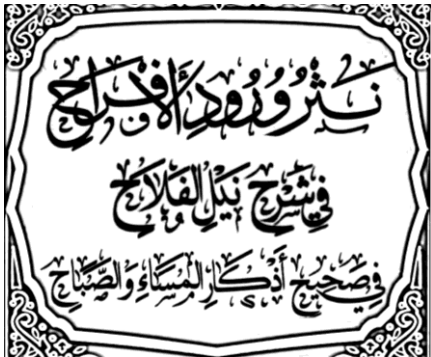 نَثْرُ وُرُودِ الْأَفْرَاحِ
فِي شَرْحِ نَيْلِ الْفَلَاحِ
فِي صَحِيحِ أَذْكَارِ الْمَسَاءِ وَالصَّبَاحِ